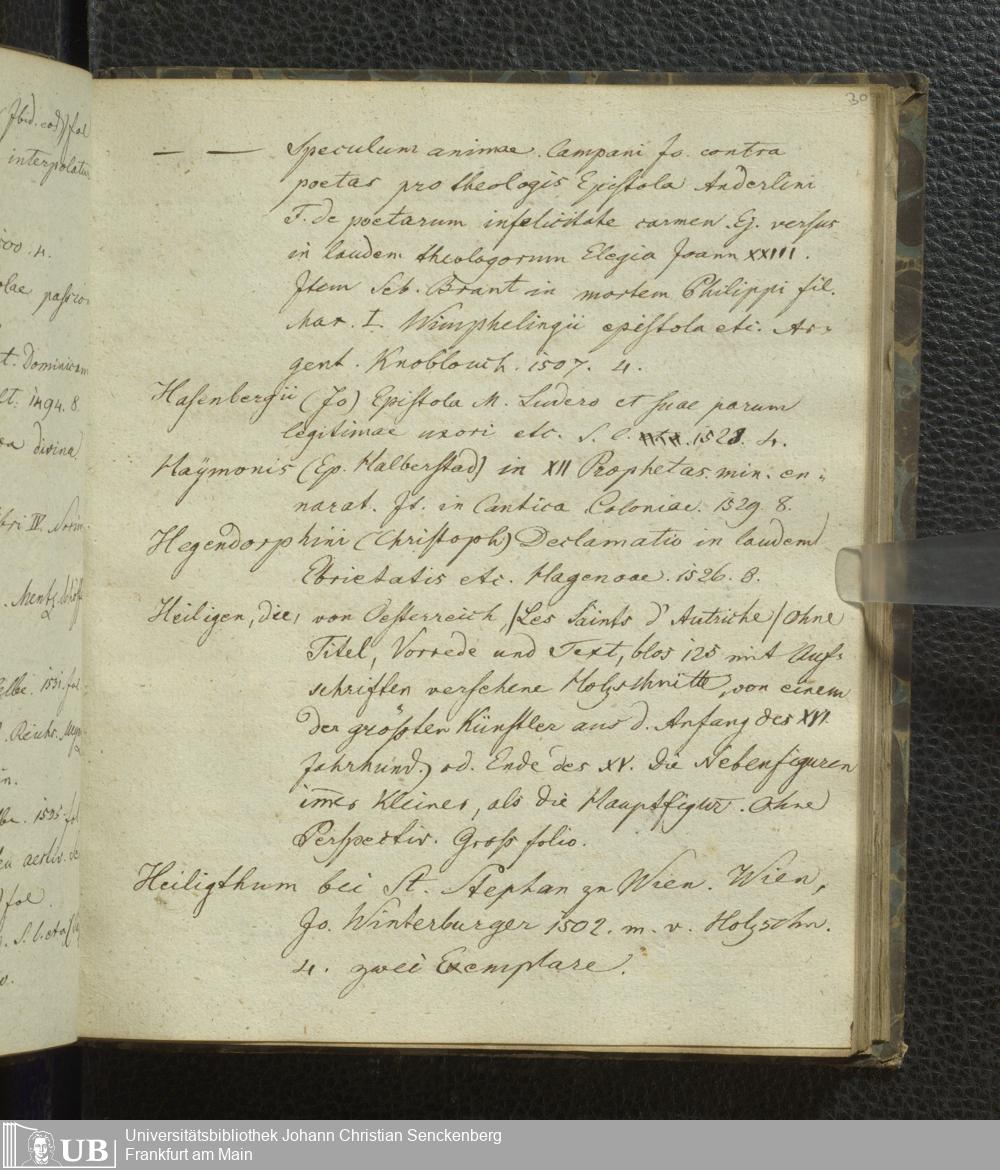 Jbid. eod) fol
interpolatu
500. 4.
olae passion
t. Dominicam
lt. 1494. 8.
ra divina
bri IV. Norim
. Mentz.
elbe. 1531. fol
. Reichs.
in.
lbe. 1535. fo
fol.
. S. l. et a
30
— — Speculum animae. Campani Jo. contra
poetas pro theologis Epistola Anderlini
F. de poetarum infelicitate carmen. Ej. versus
in laudem theologorum Elegia Joann XXIII.
Jtem Seb. Brant in mortem Philippi fil.
Max. I. Wimphelingii epistola etc. Ar=
gent. Knoblouch. 1507. 4.
Hasenbergii (Jo) Epistola M. Ludero et suae parum
legitimae uxori etc. S. l. 1528. 4.
Haÿmonis (Ep. Halberstad) in XII Prophetas. min. en=
narat. Jt. in Cantica Coloniae. 1529. 8.
Hegendorphini (Christoph) Declamatio in laudem
Ebrietatis etc. Hagenoae. 1526. 8.
Heiligen, die, von Oesterreich, /Les Saints d'Autriche/ Ohne
Titel, Vorrede und Text, blos 125 mit Auf=
schriften versehene Holzschnitte, von einem
der größten Künstler aus d. Anfang des XVI.
Jahrhund. od. Ende des XV. Die Nebenfiguren
im̄er Kleiner, als die Hauptfigur. Ohne
Perspectiv. Gross folio.
Heiligthum bei St. Stephan zu Wien. Wien,
Jo. Winterburger 1502. m. v. Holzschn.
4. zwei Exemplare.
UB
Universitätsbibliothek Johann Christian Senckenberg
Frankfurt am Main